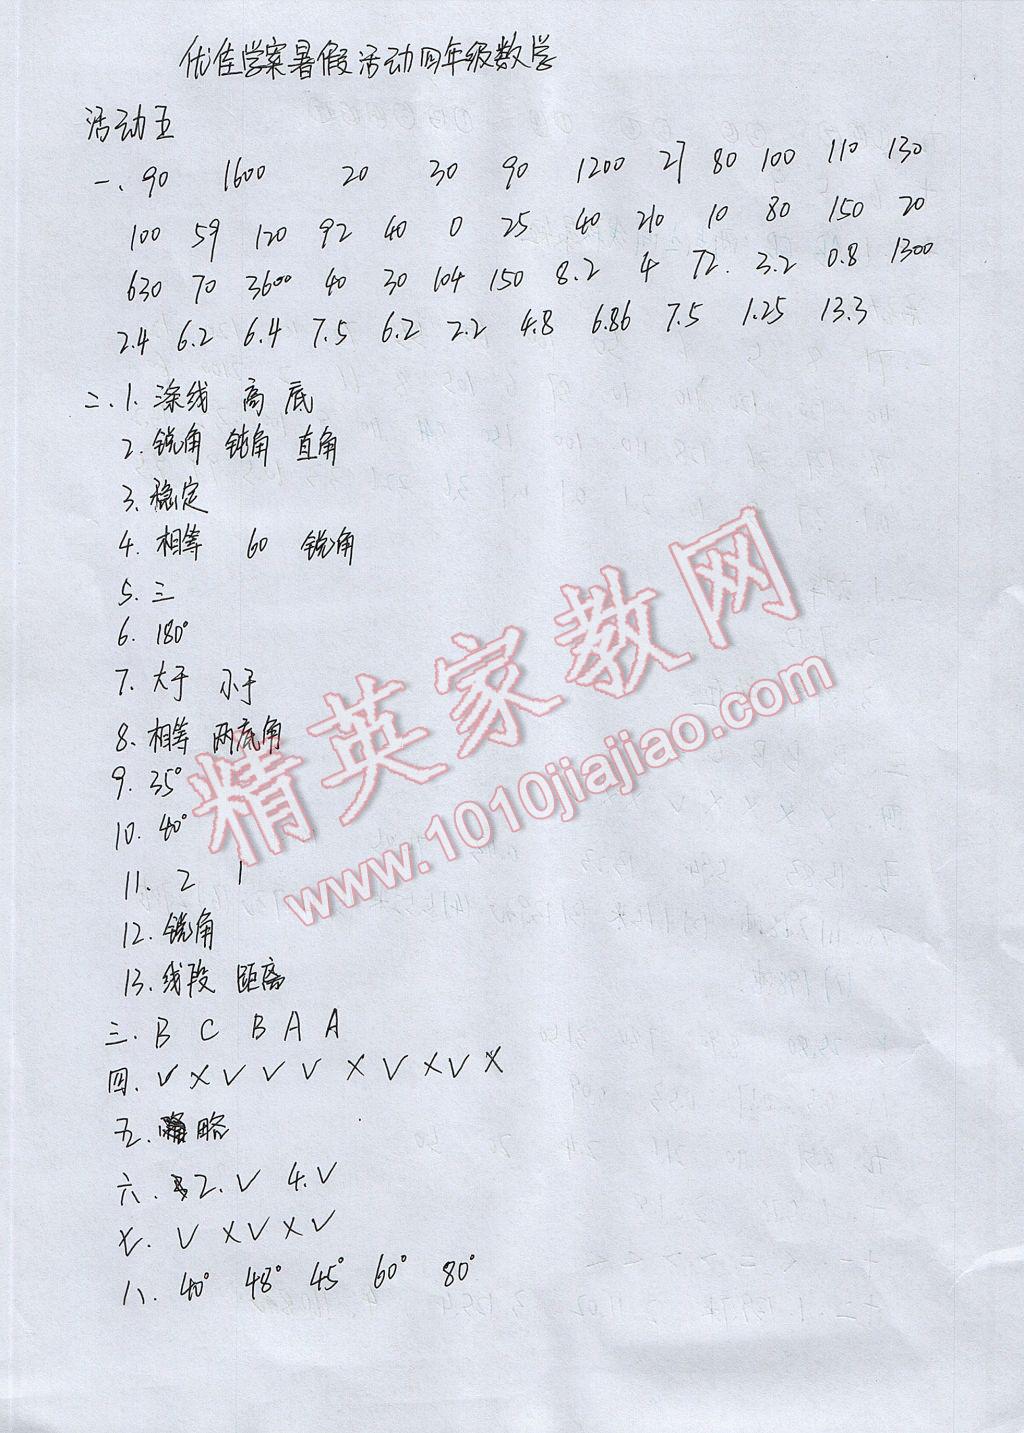 优佳学案暑假活动四年级数学
活动五
一、90 1600 20 30 90 1200 27 80 100 110 130
100 59 120 92 40 0 25 40 210 10 80 150 20
630 70 3600 40 30 104 150 8.2 4 72. 3.2 0.8 1300
2.4 6.2 6.4 7.5 6.2 2.2 4.8 6.86 7.5 1.25 13.3
二.1.涂线 高 底
2.锐角 钝角 直角
3.稳定
4.相等 60 锐角
5.三
6.180°
7.大于 小于
8.相等 两底角
9.35°
10.40°
11. 2 1
12.锐角
13.线段 距离
三.B C B A A
四.√ × √ √ √ × √ × √ ×
五. 略
六. 2.√ 4.√
七. √ × √ × √
八. 40° 48° 45° 60° 80°
精英家教网
www.1010jiajiao.com